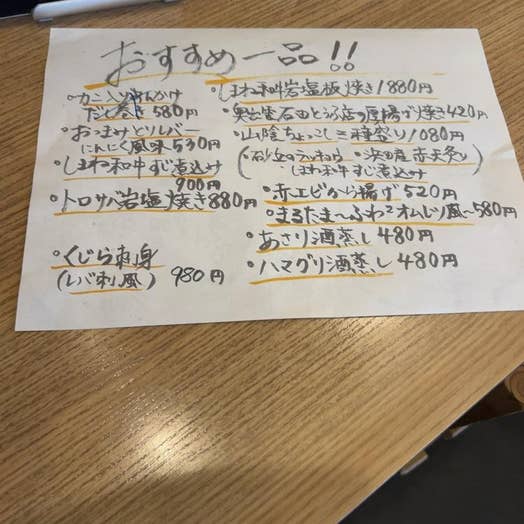 おすすめ一品!!
・カニあんかけ
だし巻き 580円
・おつまみとりレバー
にんにく風味 530円
・しまね和牛すじ煮込み
900円
・トロサバ岩塩焼き 880円
・くじら刺身
(レバ刺風) 980円
・しまね和牛岩塩板焼き 1880円
・奥出雲石田とうふ店の厚揚げ焼き 420円
・山陰ちょこっと 種盛り 1080円
(・砂丘のラッキョウ ・浜田産赤天炙り
しまね和牛すじ煮込み)
・赤エビから揚げ 520円
・まるたま〜ふわとオムレツ風〜 580円
・あさり酒蒸し 480円
・ハマグリ酒蒸し 480円